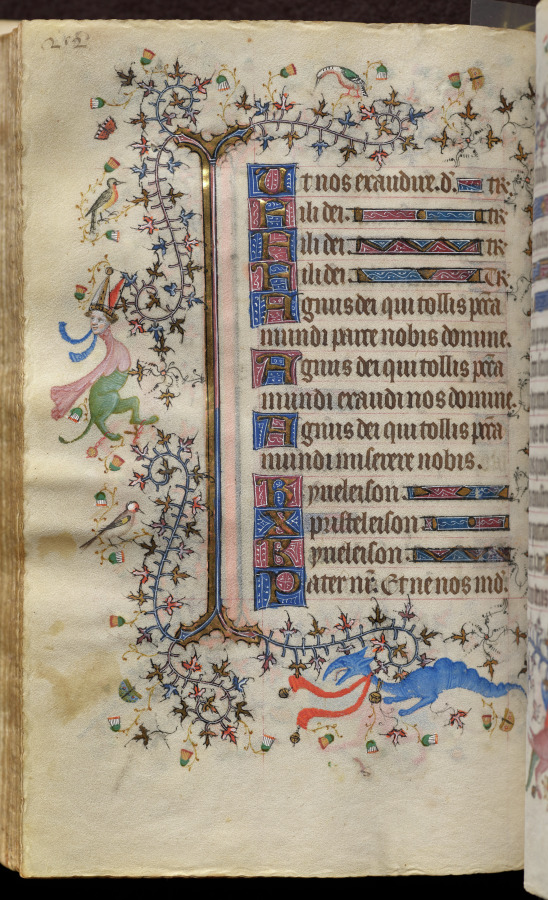 Et nos exaudire. d. tr̄.
Fili dei. tr̄
Fili dei tr̄
Fili dei. Tr̄
Agnus dei qui tollis pccā
mundi parce nobis domine.
Agnus dei qui tollis pccā
mundi exaudi nos domine.
Agnus dei qui tollis pccā
mundi miserere nobis.
Kyrieleison.
Xpristeleison
Kyrieleison
Pater nr̄. Et ne nos ind.